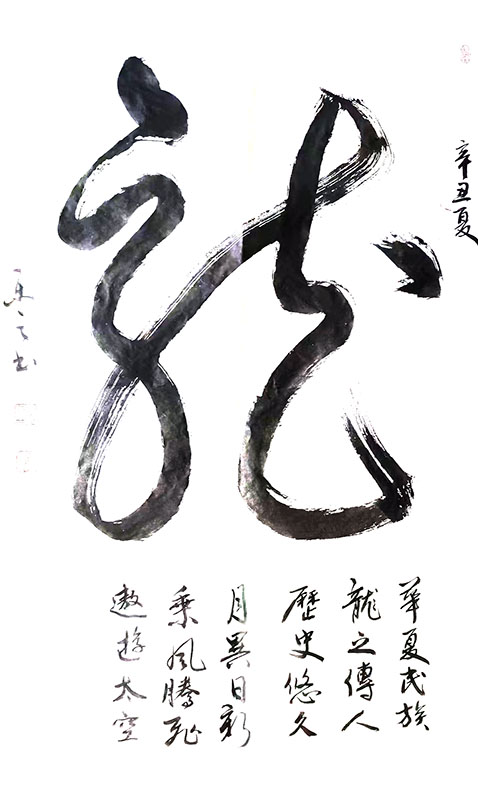 龍
辛丑夏
華夏民族
龍之傳人
歷史悠久
月異日新
乘風騰飛
遨遊太空